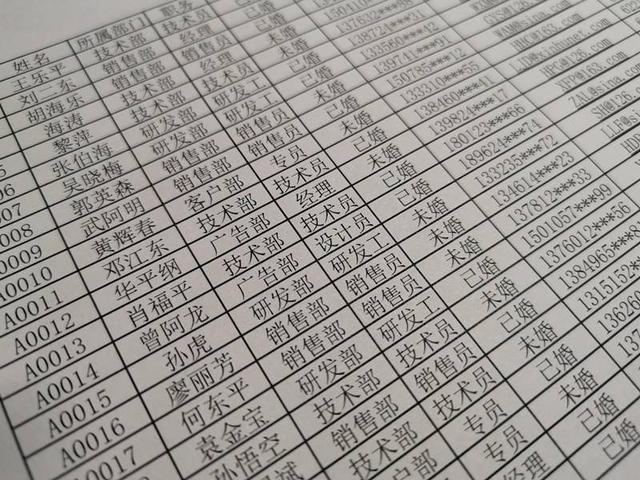 姓名
王乐平
刘二东
胡海乐
海涛
黎萍
张伯海
吴晓梅
郭英森
武阿明
黄辉春
邓江东
华平纲
肖福平
曾阿龙
孙虎
廖丽芳
何东平
袁金宝
孙悟空
斌
A0010
A0011
A0012
A0013
A0014
A0015
A0016
A0017
所属部门
技术部
销售部
技术部
销售部
研发部
研发部
销售部
客户部
技术部
广告部
技术部
广告部
研发部
销售部
销售部
研发部
技术部
销售部
技术部
户部
职务
技术员
经理
经理
技术员
研发工
研发工
销售员
专员
技术员
经理
技术员
设计员
研发工
销售员
销售员
研发工
技术员
销售员
技术员
专员
专员
经理
已婚
已婚
未婚
已婚
未婚
未婚
已婚
未婚
未婚
已婚
已婚
未婚
未婚
已婚
已婚
未婚
已婚
未婚
已婚
未婚
已婚
已婚
137632***88
133560***42
139741***91
150785***12
133310***55
138460***41
139824***17
180123***66
189624***74
133235***72
134614***23
137812***33
1501057***99
1376012***56
1384965***8
1315152***